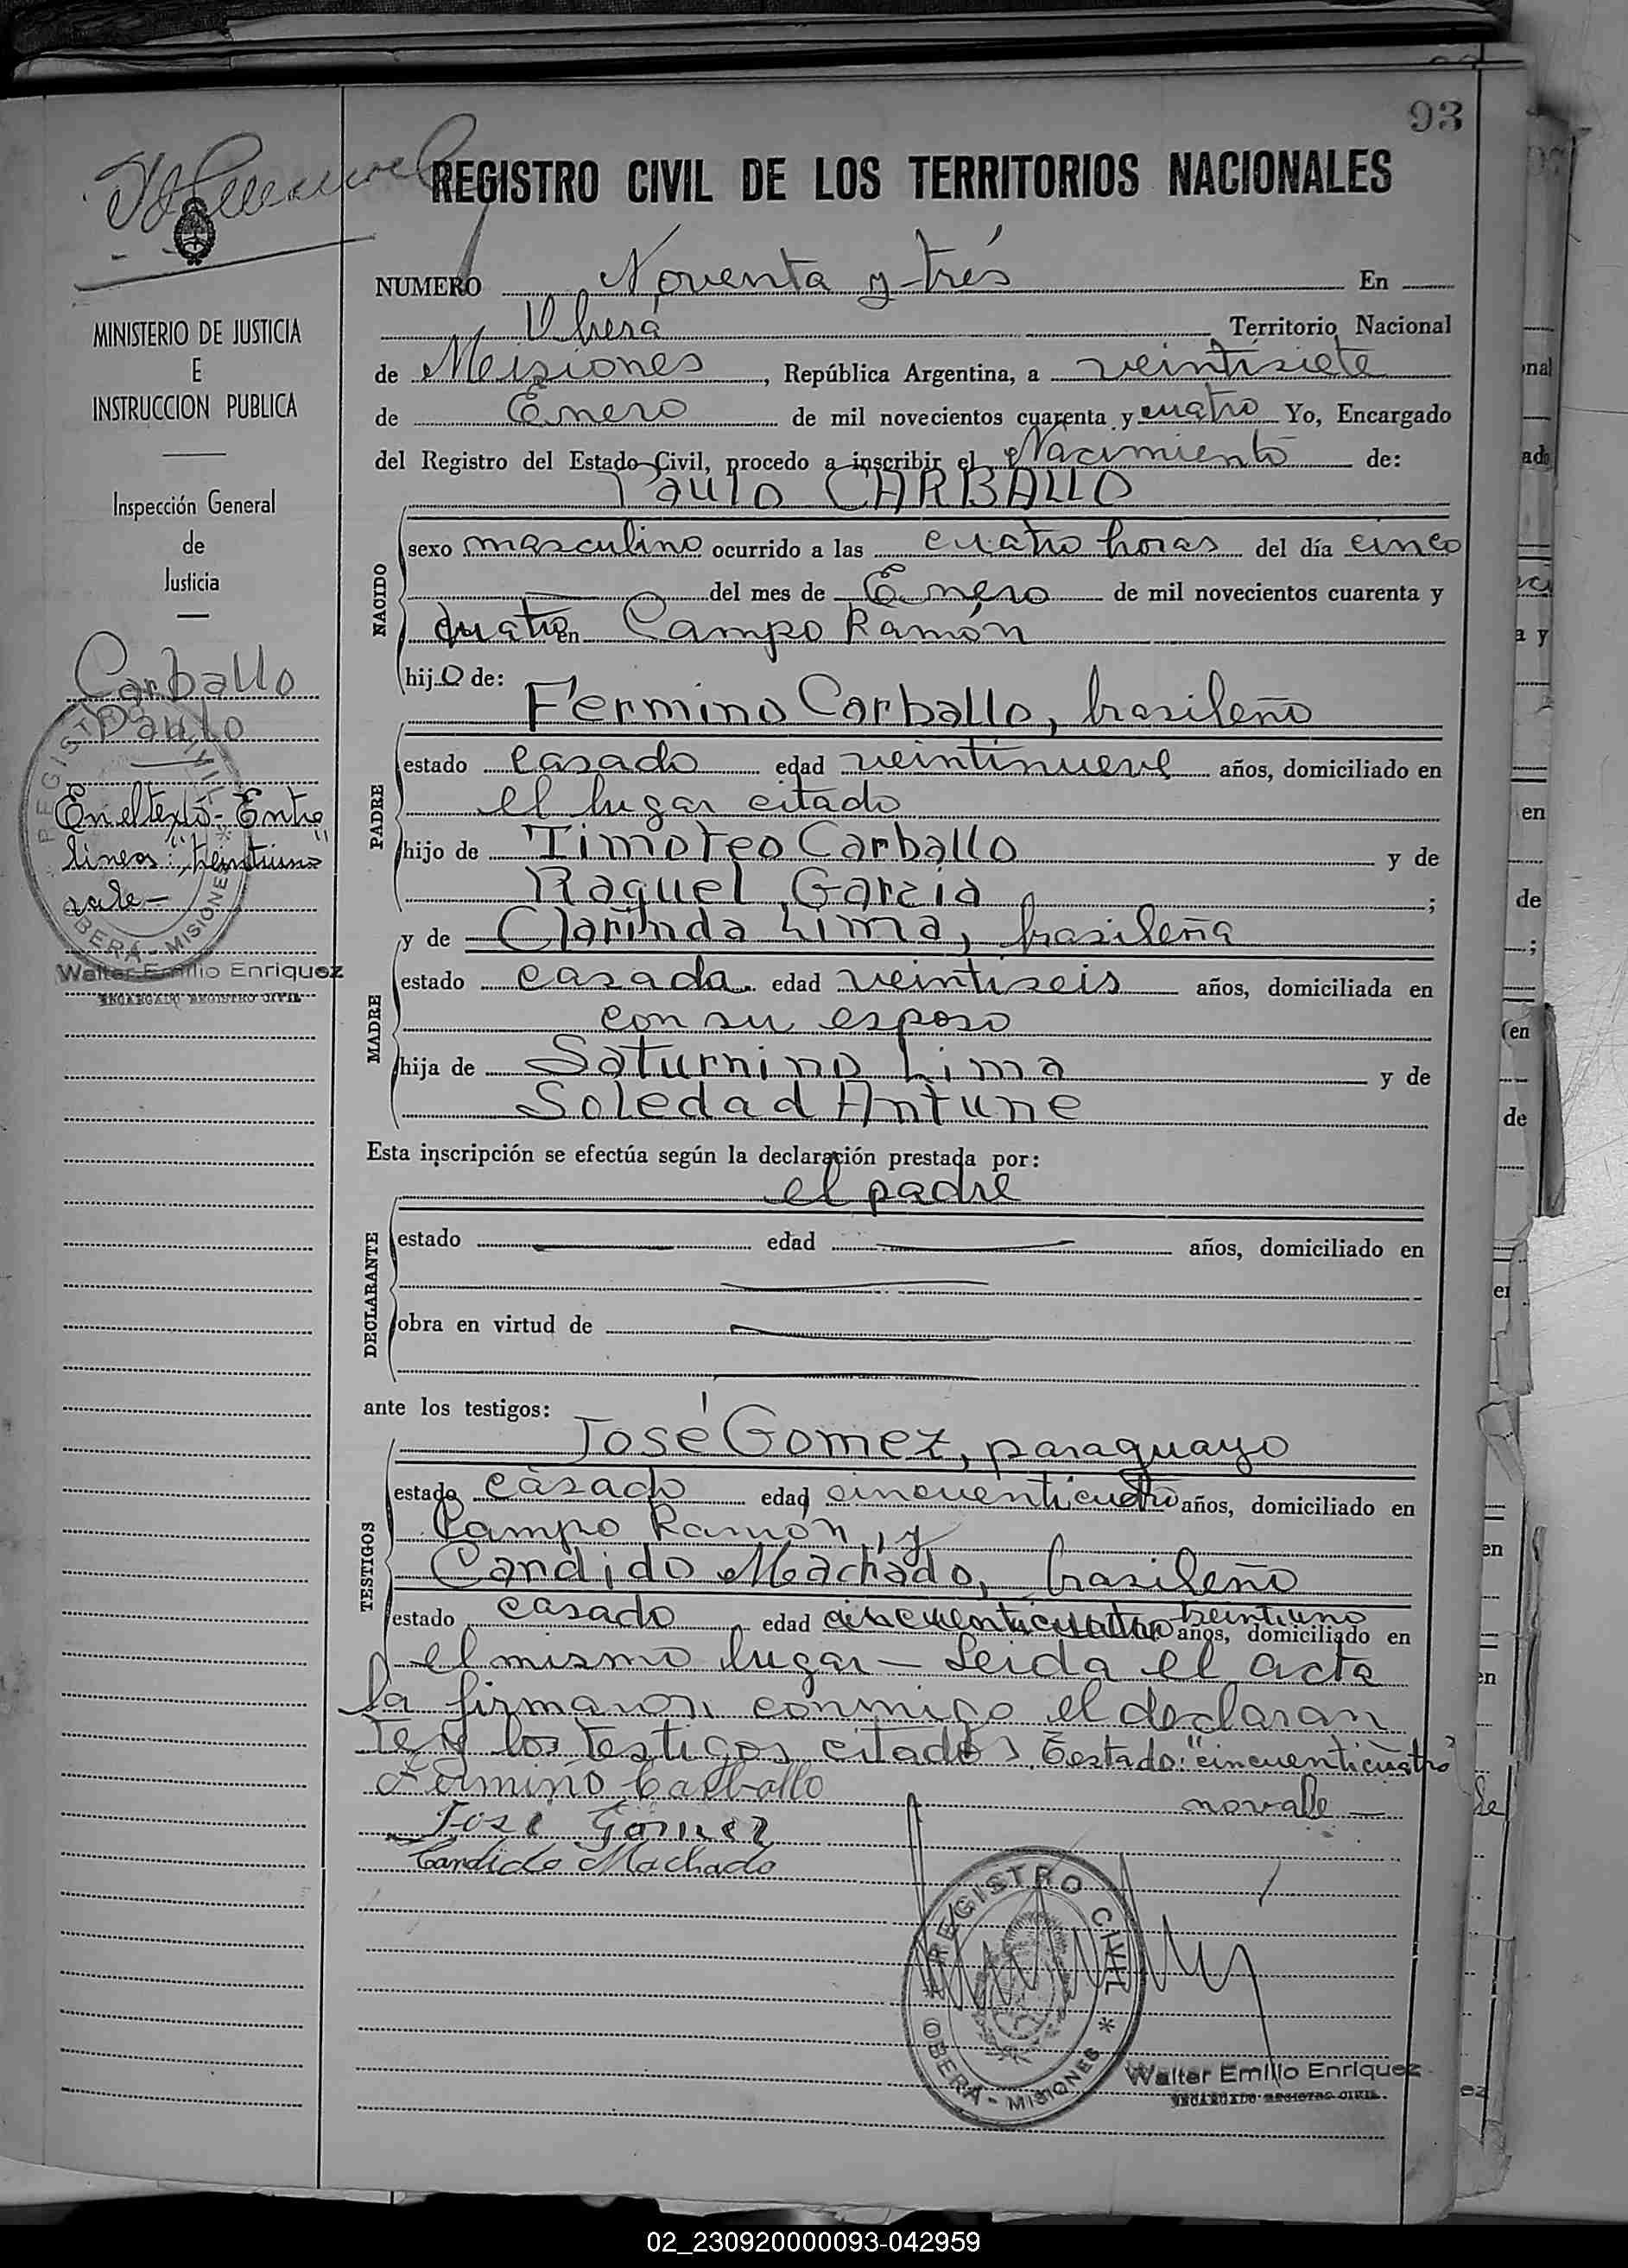 93
REGISTRO CIVIL DE LOS TERRITORIOS NACIONALES
MINISTERIO DE JUSTICIA
E
INSTRUCCION PUBLICA
Inspección General
de
Justicia
Carballo
Paulo
En el texto - Entre
líneas: "treintiuno"
vale -
REGISTRO CIVIL
OBERÁ - MISIONES
Walter Emilio Enriquez
ENCARGADO REGISTRO CIVIL
NUMERO Noventa y trés En
Oberá Territorio Nacional
de Misiones, República Argentina, a veintisiete
de Enero de mil novecientos cuarenta y cuatro Yo, Encargado
del Registro del Estado Civil, procedo a inscribir el Nacimiento de:
Paulo CARBALLO
NACIDO
sexo masculino ocurrido a las cuatro horas del día cinco
del mes de Enero de mil novecientos cuarenta y
cuatro en Campo Ramón
hijo de:
Fermino Carballo, brasileño
PADRE
estado casado edad veintinueve años, domiciliado en
el lugar citado
hijo de Timoteo Carballo y de
Raquel Garcia ;
y de Clarinda Lima, brasileña
MADRE
estado casada edad veintiseis años, domiciliada en
con su esposo
hija de Saturnino Lima y de
Soledad Antune
Esta inscripción se efectúa según la declaración prestada por:
el padre
DECLARANTE
estado edad años, domiciliado en
obra en virtud de
ante los testigos:
José Gomez, paraguayo
TESTIGOS
estado casado edad cincuenticuatro años, domiciliado en
Campo Ramón, y
Candido Machado, brasileño
estado casado edad cincuenticuatro treintiuno años, domiciliado en
el mismo lugar - Leida el acta
la firmaron conmigo el declaran
te y los testigos citados. Testado: "cincuenticuatro"
no vale -
Fermino Carballo
José Gómez
Candido Machado
REGISTRO CIVIL
OBERÁ - MISIONES
Walter Emilio Enriquez
ENCARGADO REGISTRO CIVIL
02_230920000093-042959